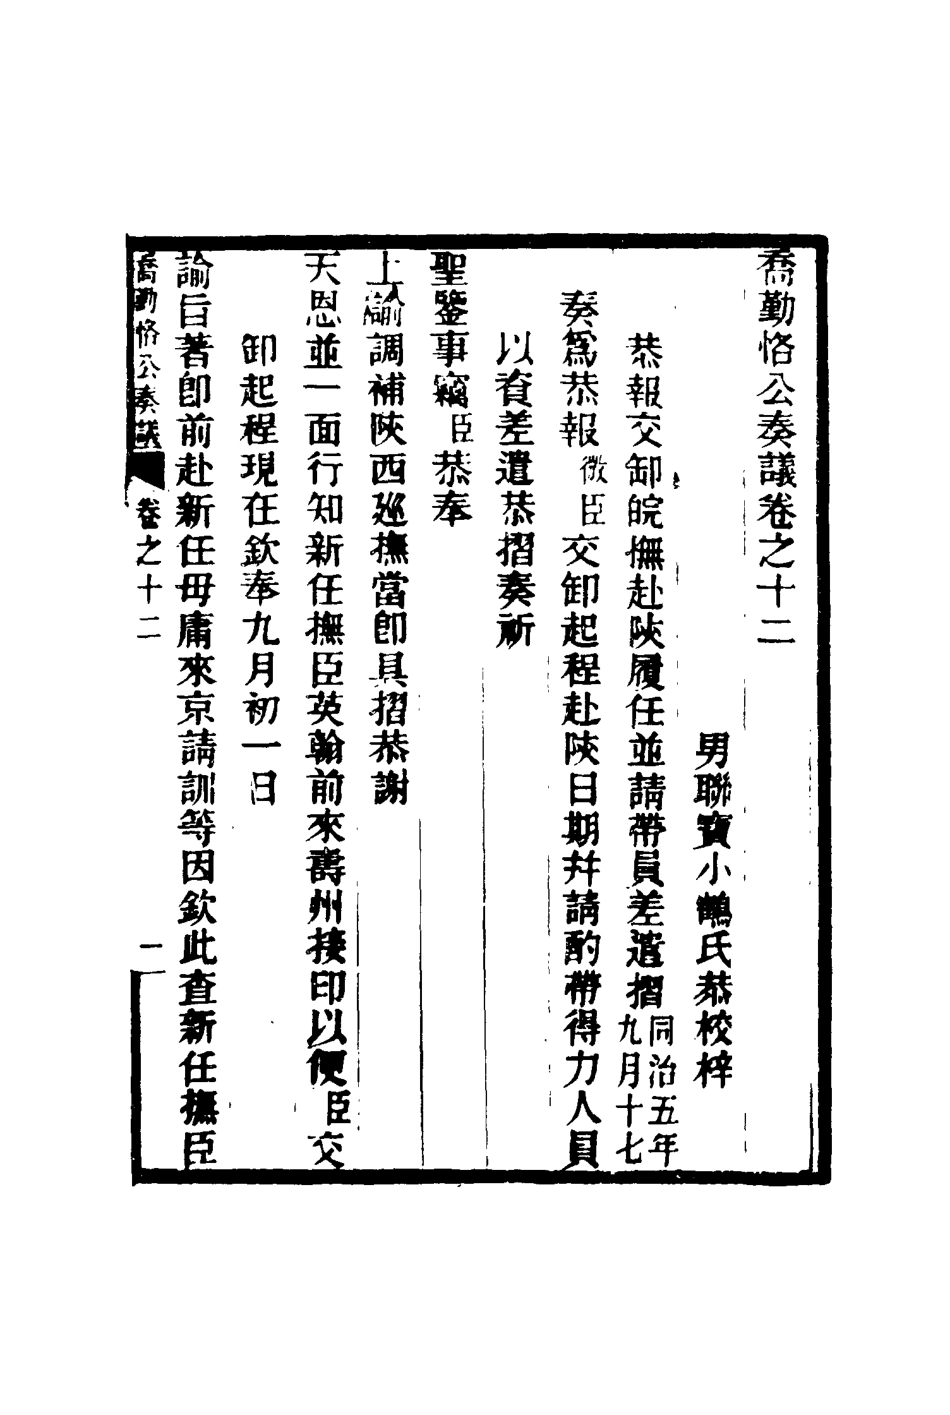 喬勤恪公奏議卷之十二
男聯寶小鶴氏恭校梓
恭報交卸皖撫赴陝履任並請帶員差遣摺同治五年九月十七
奏爲恭報微臣交卸起程赴陝日期幷請酌帶得力人員
以資差遣恭摺奏祈
聖鑒事竊臣恭奉
上諭調補陝西廵撫當卽具摺恭謝
天恩並一面行知新任撫臣英翰前來壽州接印以便臣交
卸起程現在欽奉九月初一日
諭旨著卽前赴新任毋庸來京請訓等因欽此查新任撫臣
喬勤恪公奏議 卷之十二 一